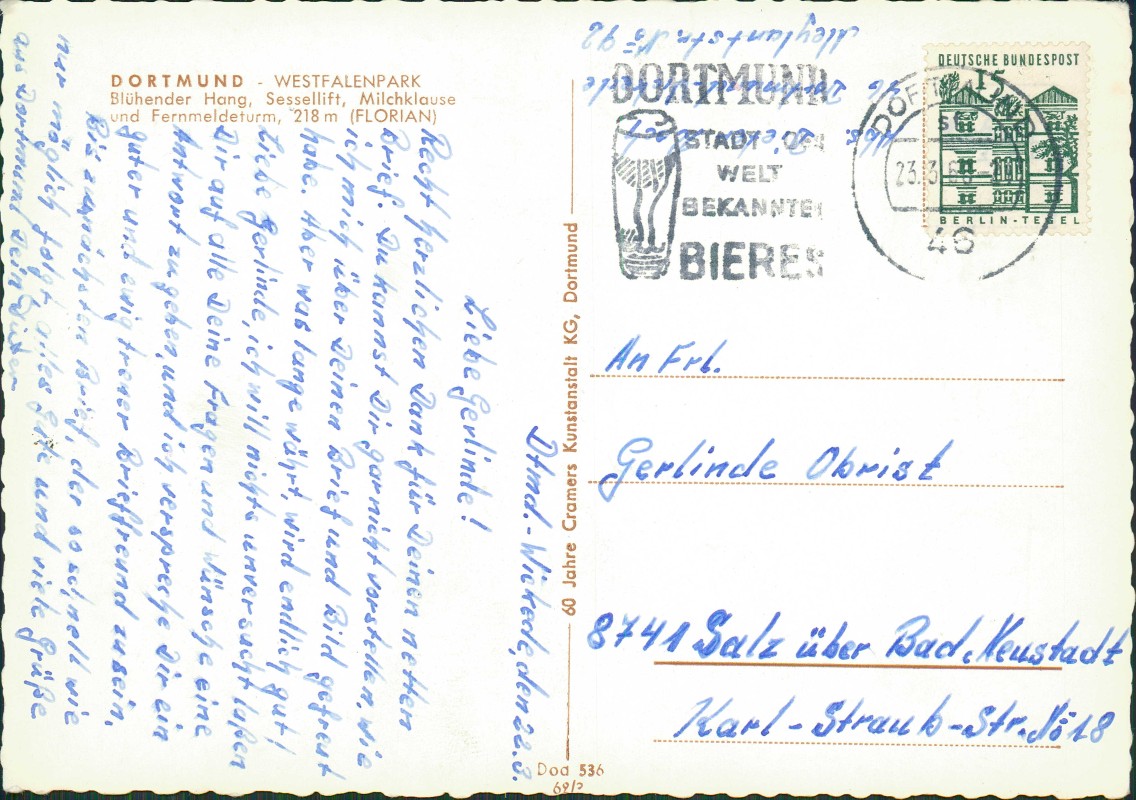 DORTMUND - WESTFALENPARK
Blühender Hang, Sessellift, Milchklause
und Fernmeldeturm, 218 m (FLORIAN)
Dtmd.-Wickede, den 22.3.
Liebe Gerlinde!
Recht herzlichen Dank für Deinen netten
Brief. Du kannst Dir gar nicht vorstellen, wie
ich mich über Deinen Brief und Bild gefreut
habe. Aber was lange währt, wird endlich gut!
Liebe Gerlinde, ich will nichts unversucht laßen
Dir auf alle Deine Fragen und Wünsche eine
Antwort zu geben, und ich verspreche Dir ein
guter und ewig treuer Brieffreund zu sein.
Bis zum nächsten Brief, der so schnell wie
nur möglich folgt alles Gute und viele Grüße
aus Dortmund Dein Dieter
60 Jahre Cramers Kunstanstalt KG, Dortmund
Dod 536
Abs. Dieter
46 Dortmund-Wickede
No 92
DORTMUND
STADT DES
WELT
BEKANNTEN
BIERES
DORTMUND
23.3.
46
DEUTSCHE BUNDESPOST
15
BERLIN-TEGEL
An Frl.
Gerlinde Obrist
8741 Salz über Bad Neustadt
Karl-Straub-Str. No 18